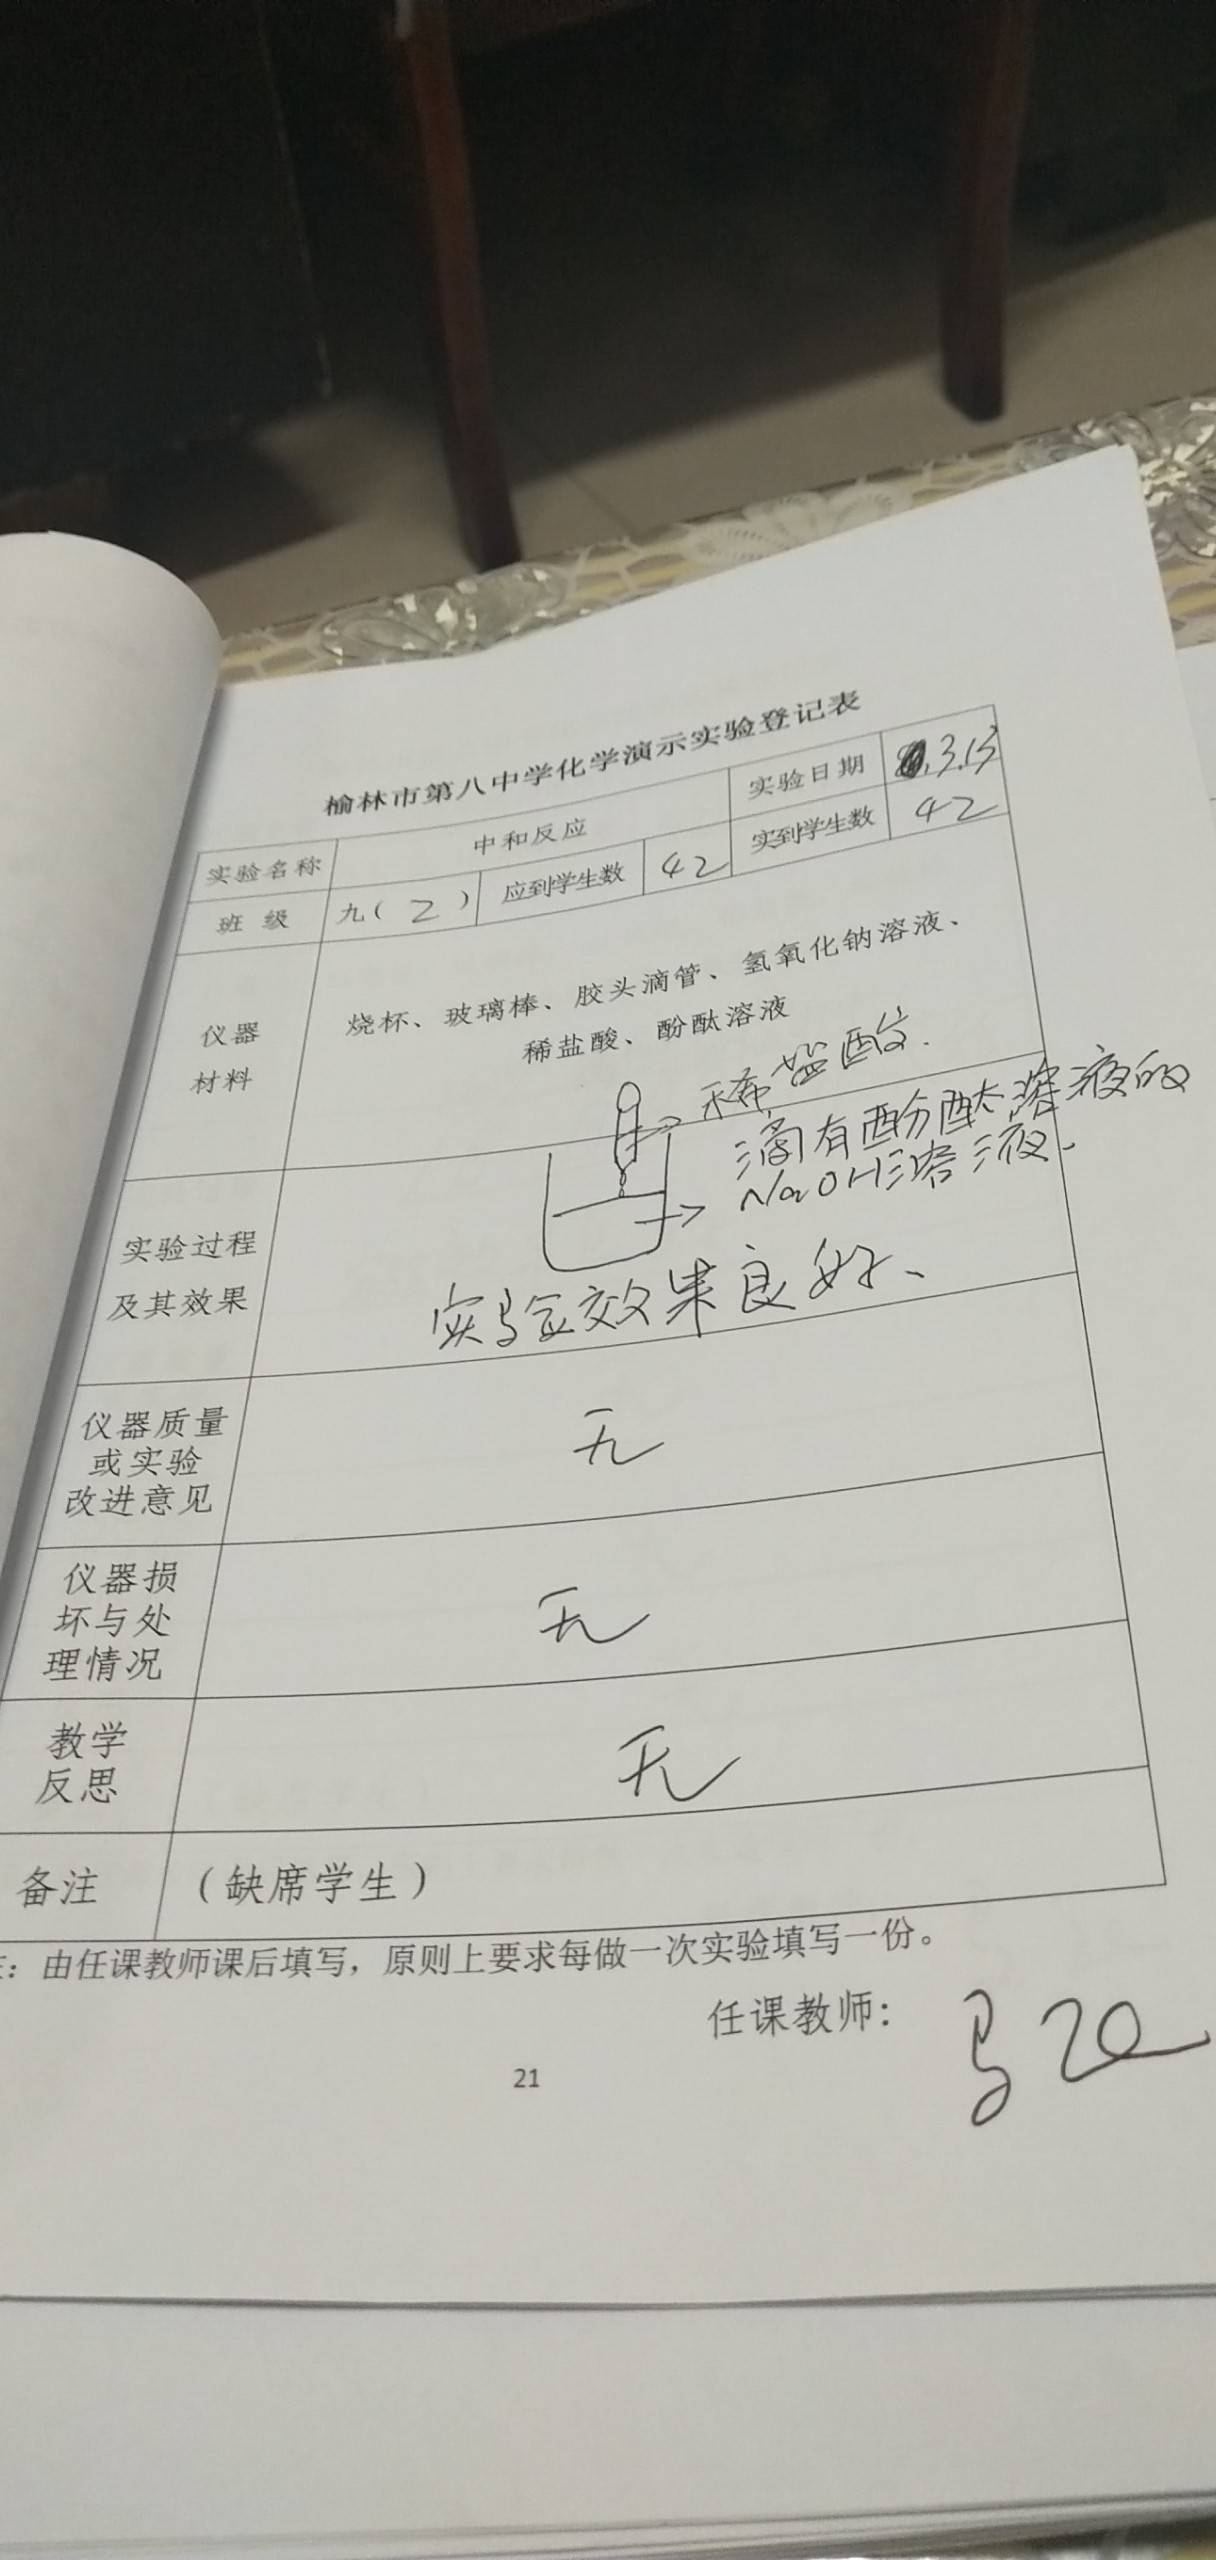 榆林市第八中学化学演示实验登记表
实验名称 中和反应 实验日期 .3.13
班 级 九( 2 ) 应到学生数 42 实到学生数 42
仪器
材料
烧杯、玻璃棒、胶头滴管、氢氧化钠溶液、
稀盐酸、酚酞溶液
稀盐酸.
滴有酚酞溶液的
NaOH溶液.
实验过程
及其效果
实验效果良好、
仪器质量
或实验
改进意见
无
仪器损
坏与处
理情况
无
教学
反思
无
备注 (缺席学生)
: 由任课教师课后填写，原则上要求每做一次实验填写一份。
任课教师: 马
21